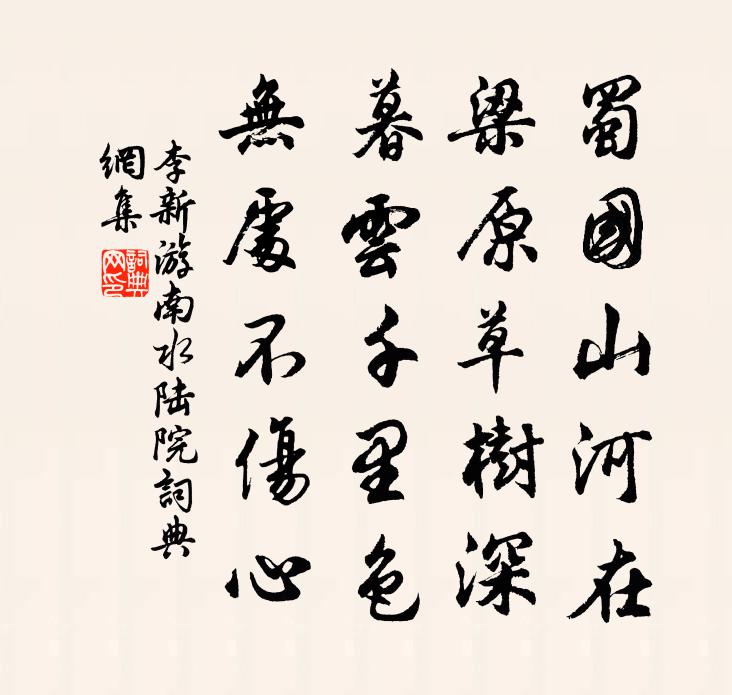 蜀國山河在
梁原草樹深
暮雲千里色
無處不傷心
李新游南水陆院詞典
網集
詞典
网印